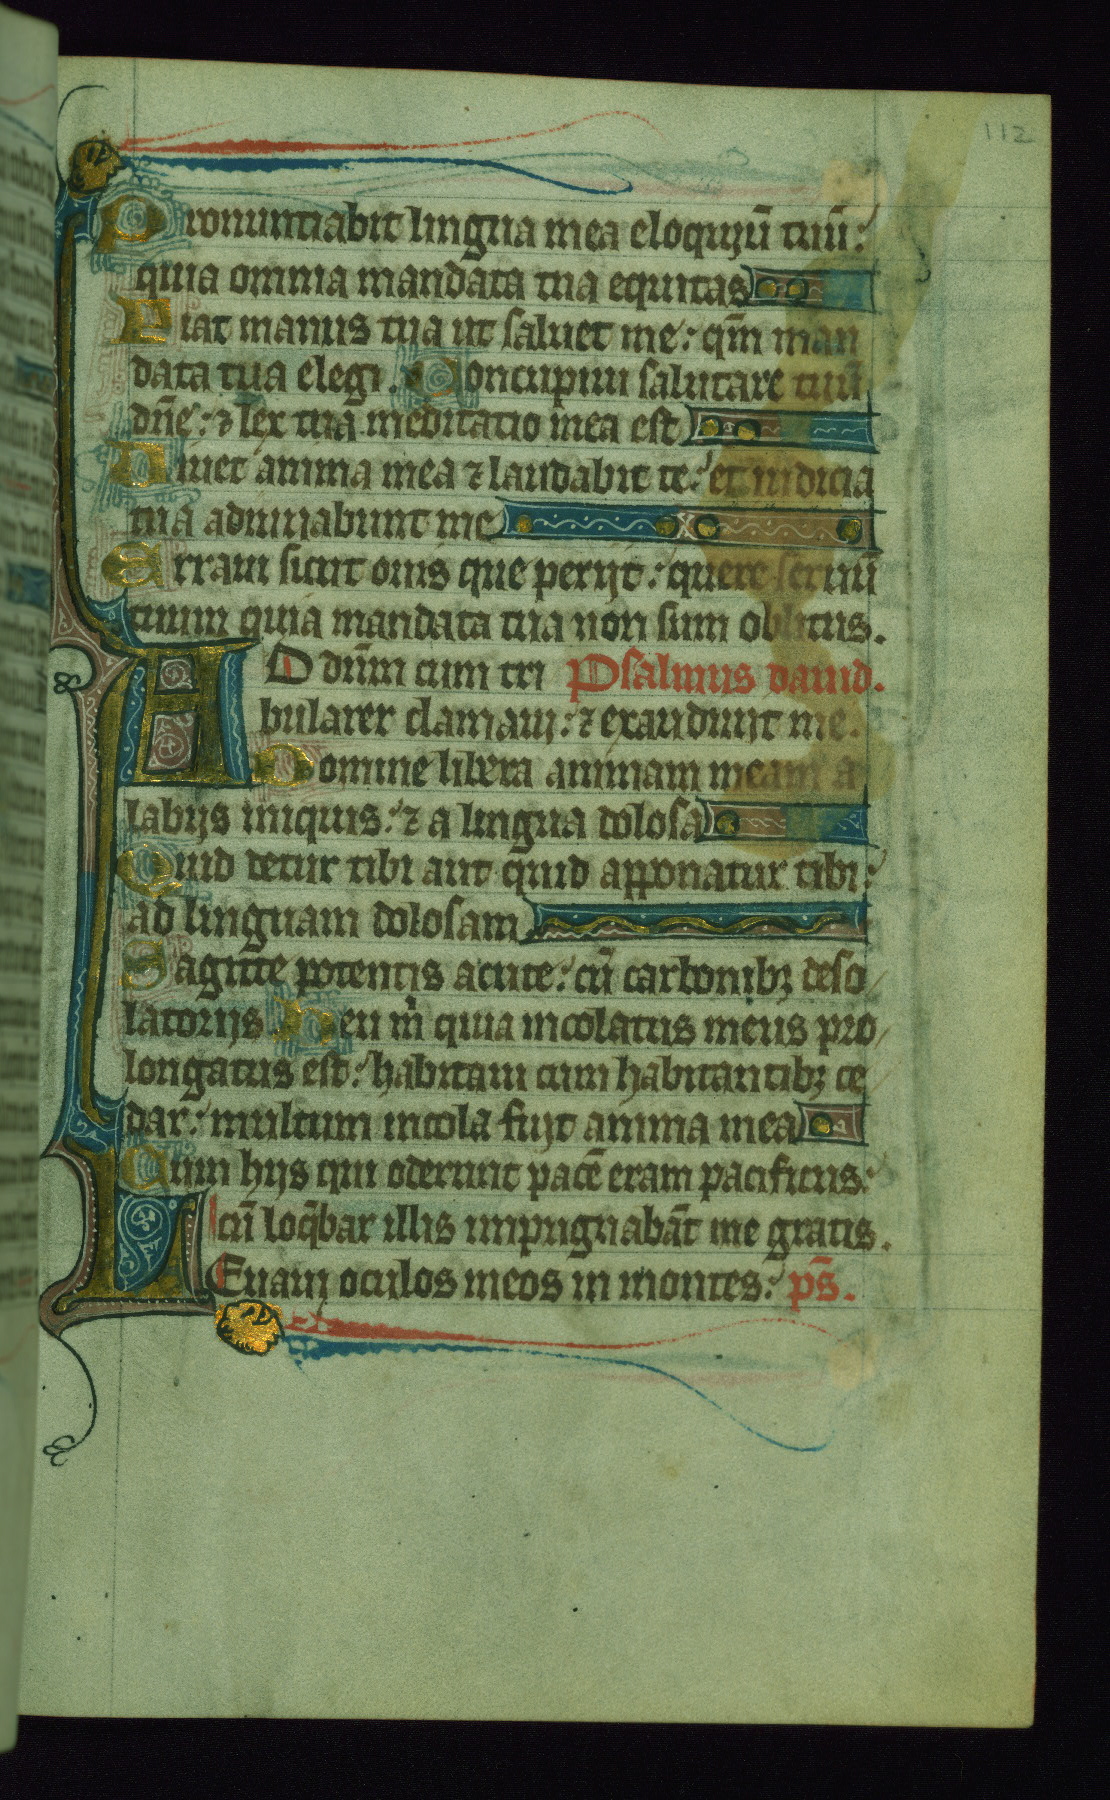 112
Pronuntiabit lingua mea eloquiū tuū:
quia omnia mandata tua equitas
Fiat manus tua ut saluet me: qm̄ man
data tua elegi. Concupiui salutare tuū
dn̄e: ⁊ lex tua meditatio mea est
Uiuet anima mea ⁊ laudabit te: et iudicia
tua adiuuabunt me
Erraui sicut ouis que perijt: quere seruū
tuum quia mandata tua non sum oblitus.
AD dn̄m cum tri Psalmus dauid.
bularer clamaui: ⁊ exaudiuit me.
Domine libera animam meam a
labijs iniquis: ⁊ a lingua dolosa
Quid detur tibi aut quid apponatur tibi:
ad linguam dolosam
Sagitte potentis acute: cū carbonibꝫ deso
latorijs Heu m̄ quia incolatus meus pro
longatus est: habitaui cum habitantibꝫ ce
dar: multum incola fuit anima mea
Cum hijs qui oderunt pacē eram pacificus:
cū loq̄bar illis inpugnabāt me gratis.
LEuaui oculos meos in montes: ps̄.